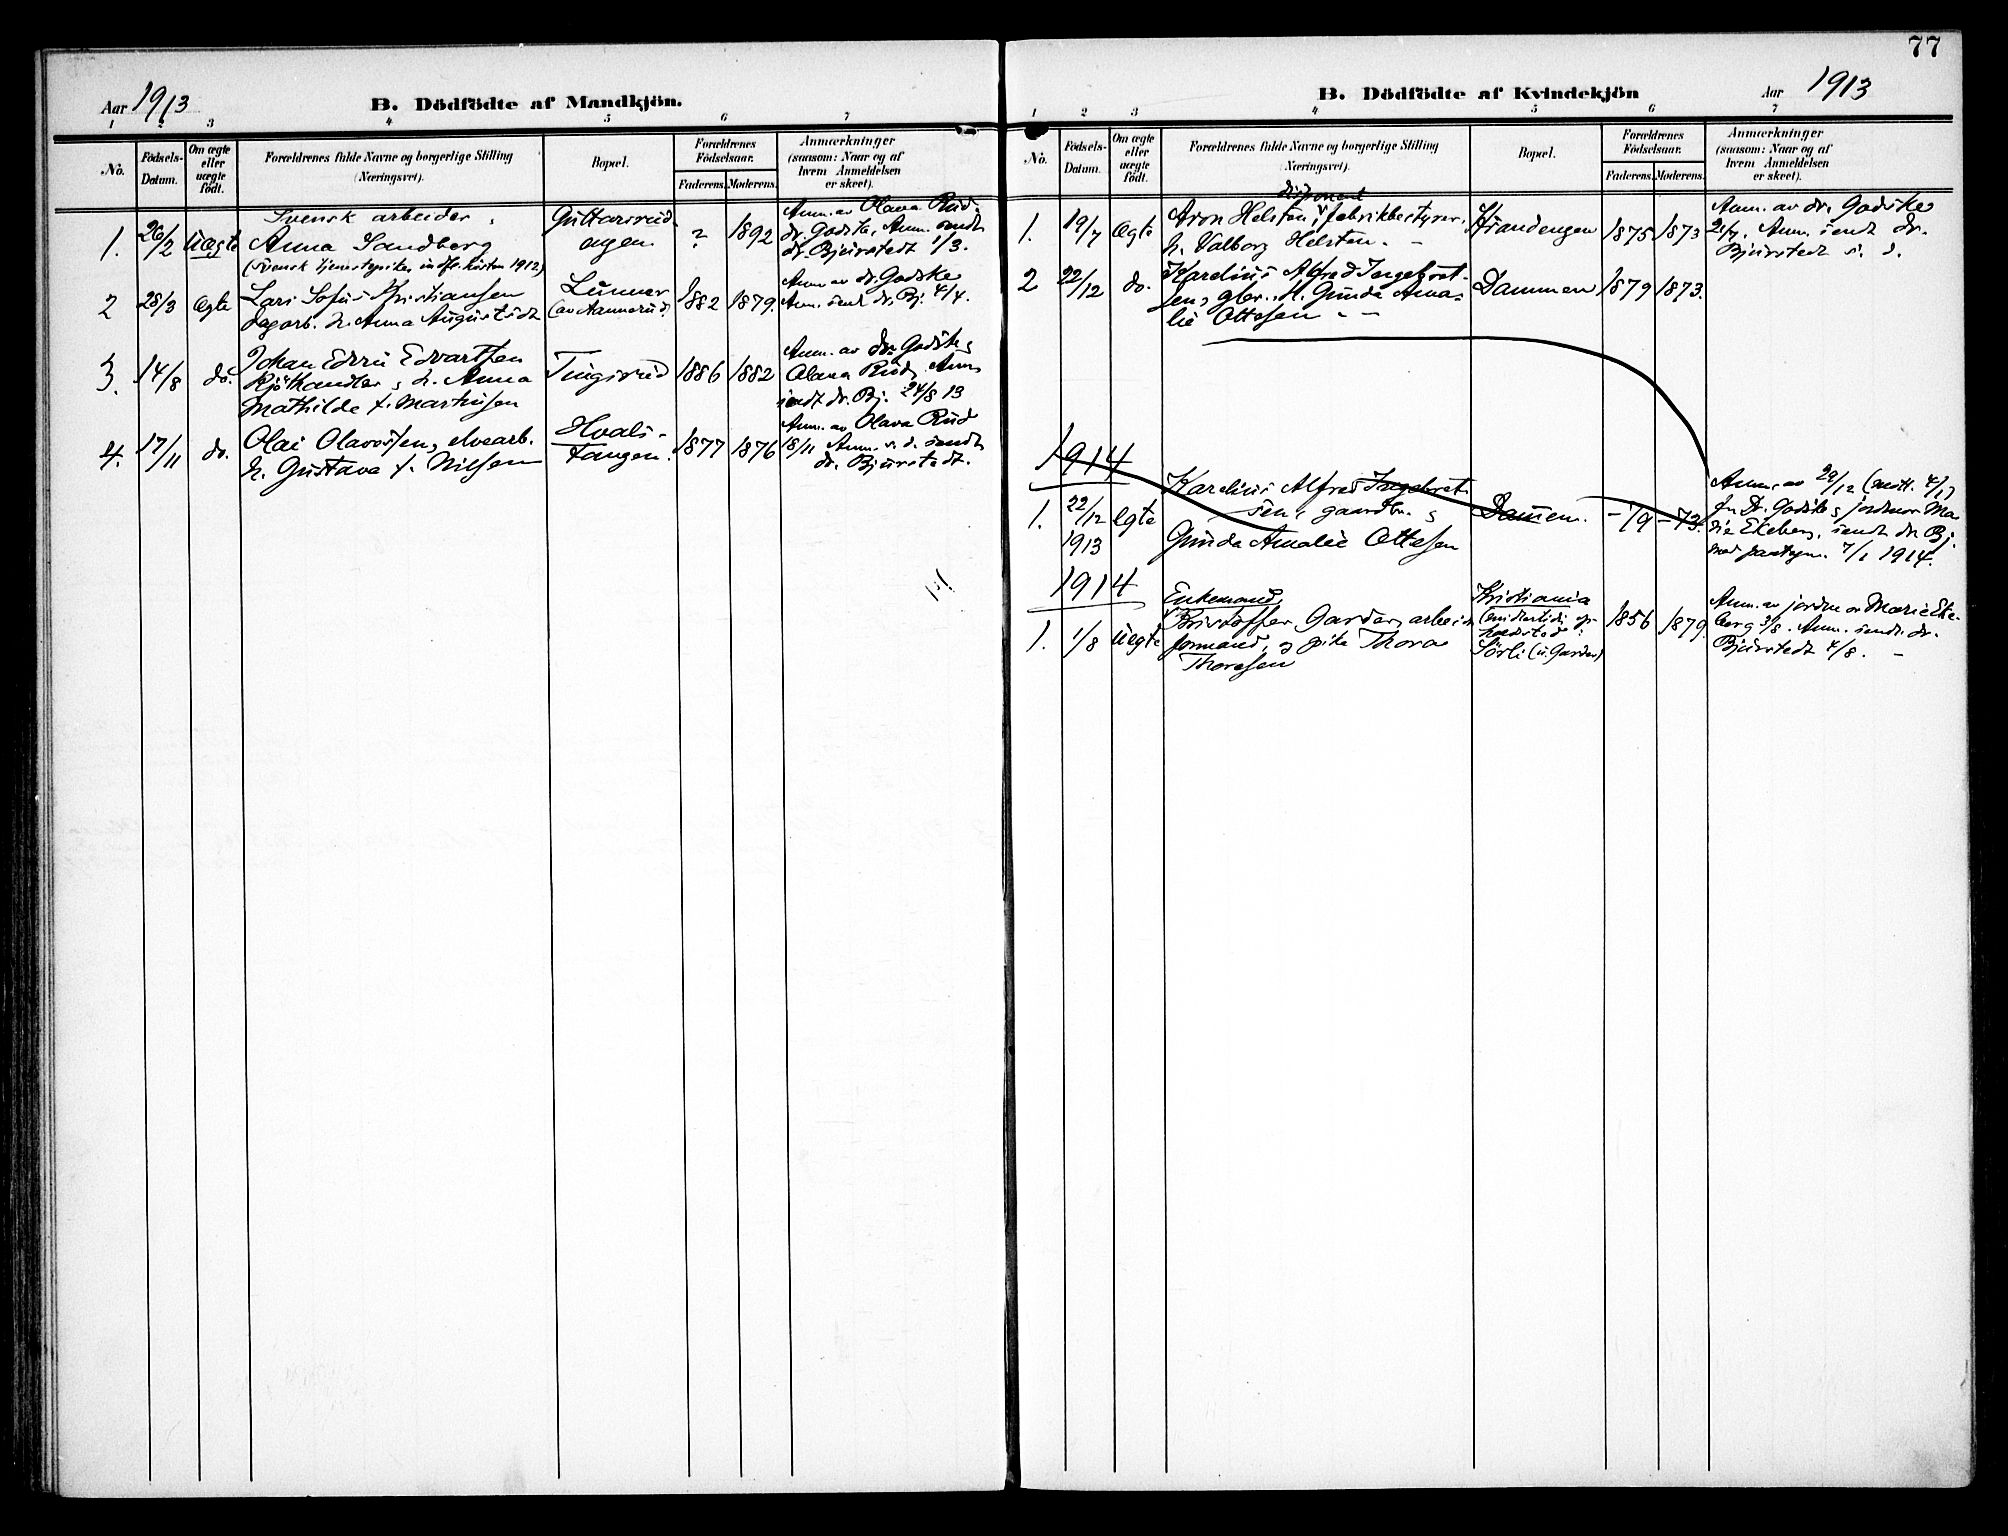 77
Aar 1913
B. Dödfödte af Mandkjön.
1 2 3 4 5 6 7
No.
Födsels-
Datum.
Om ægte
eller
uægte
födt.
Forældrenes fulde Navne og borgerlige Stilling
(Næringsvei).
Bopæl.
Forældrenes
Födselsaar.
Faderens. Moderens.
Anmærkninger
(saasom: Naar og af
hvem Anmeldelsen
er skeet).
1. 26/2 Uægte
Svensk arbeider,
Anna Sandberg
(Svensk tjenestepike, indfl. hösten 1912)
? 1892
Anm. av Olava Rud,
dr. Godske, Anm. sendt
dr. Bjurstedt 1/3.
2 28/3 Ægte
Lars Sofus Kristiansen
dagarb. h. Anna
Lunner
1882 1879.
Anm. av dr. Godske
Anm. sendt dr. Bj. 4/4.
3. 14/8 do.
Johan Edvin Edvartsen
Kjöthandler, h. Anna
Mathilde f. Martinsen
Tingsrud
1886 1882
Anm. av dr. Godske,
Olava Rud, Anm.
sendt dr. Bj. 24/8 13
4. 17/11 do.
Olai Olavessen, elvearb.
h. Gustava f. Nilsen
Hvals-
tangen.
1877 1876
Anm. av Olava Rud
18/11 Anm. s. d. sendt
dr. Bjurstedt.
B. Dödfödte af Kvindekjön
Aar 1913
1 2 3 4 5 6 7
No.
Födsels-
Datum.
Om ægte
eller
uægte
födt.
Forældrenes fulde Navne og borgerlige Stilling
(Næringsvei).
Bopæl.
Forældrenes
Födselsaar.
Faderens. Moderens.
Anmærkninger
(saasom: Naar og af
hvem Anmeldelsen
er skeet).
disponent
1. 19/7 Ægte
Aron Helsten, fabrikbestyrer,
h. Valborg Helsten. -
Strandengen
1875 1873
Anm. av dr. Godske
21/7. Anm. sendt dr.
Bjurstedt s. d.
2 22/12 do.
Karelius Alfred Ingebret-
sen, gbr. H. Gunda Ama-
lie Ottesen - -
Dammen
1879 1873.
1914
1. 22/12 1913 Egte
Karelius Alfred Ingebret-
sen, gaardbr. s
Gunda Amalie Ottesen
Dammen.
-79 -73.
Anm. av 29/12 (mott. 4/1)
fra Dr. Godske, jordmor Ma-
rie Ekeberg, sendt dr. Bj.
7/1 1914.
1914
1. 1/8 Uegte
Enkemand
Kristoffer Garder, arbeids
formand, og pike Thora
Thoresen
Kristiania
(midlertidig op-
holdssted:
Sörli (u. Garder)
1856 1879.
Anm. av jordmor Marie Eke-
berg 3/8. Anm. sendt dr.
Bjurstedt 4/8. -